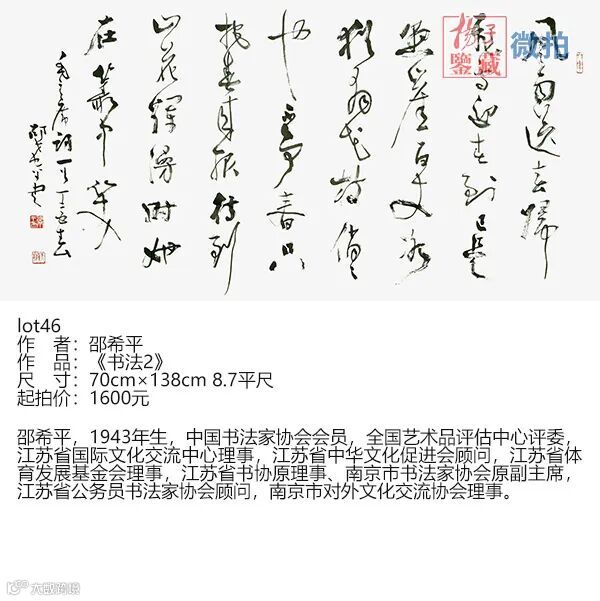 風雨送春歸
飛雪迎春到已是
懸崖百丈冰
猶有花枝俏俏
也不爭春只
把春來報待到
山花爛漫時她
在叢中笑
毛主席词一首丁丑春
邵希平書
揚子
鑒藏
微拍
lot46
作 者：邵希平
作 品：《书法2》
尺 寸：70cm×138cm 8.7平尺
起拍价：1600元
邵希平，1943年生，中国书法家协会会员，全国艺术品评估中心评委，
江苏省国际文化交流中心理事，江苏省中华文化促进会顾问，江苏省体
育发展基金会理事，江苏省书协原理事、南京市书法家协会原副主席，
江苏省公务员书法家协会顾问，南京市对外文化交流协会理事。
大威跨境